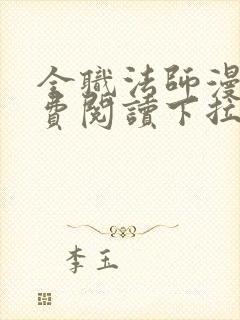 全職法師漫
費閱讀下拉
李玉